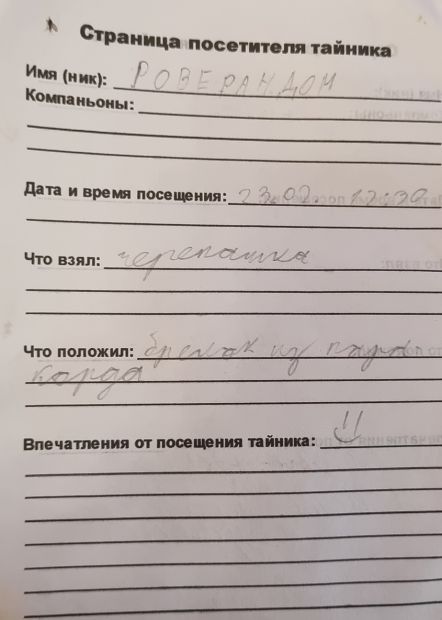 Страница посетителя тайника
Имя (ник): РОВЕРАНДОМ
Компаньоны:
Дата и время посещения: 23.02. 12:30
Что взял: черепашка
Что положил: брелок из пара
корда
Впечатления от посещения тайника: :)